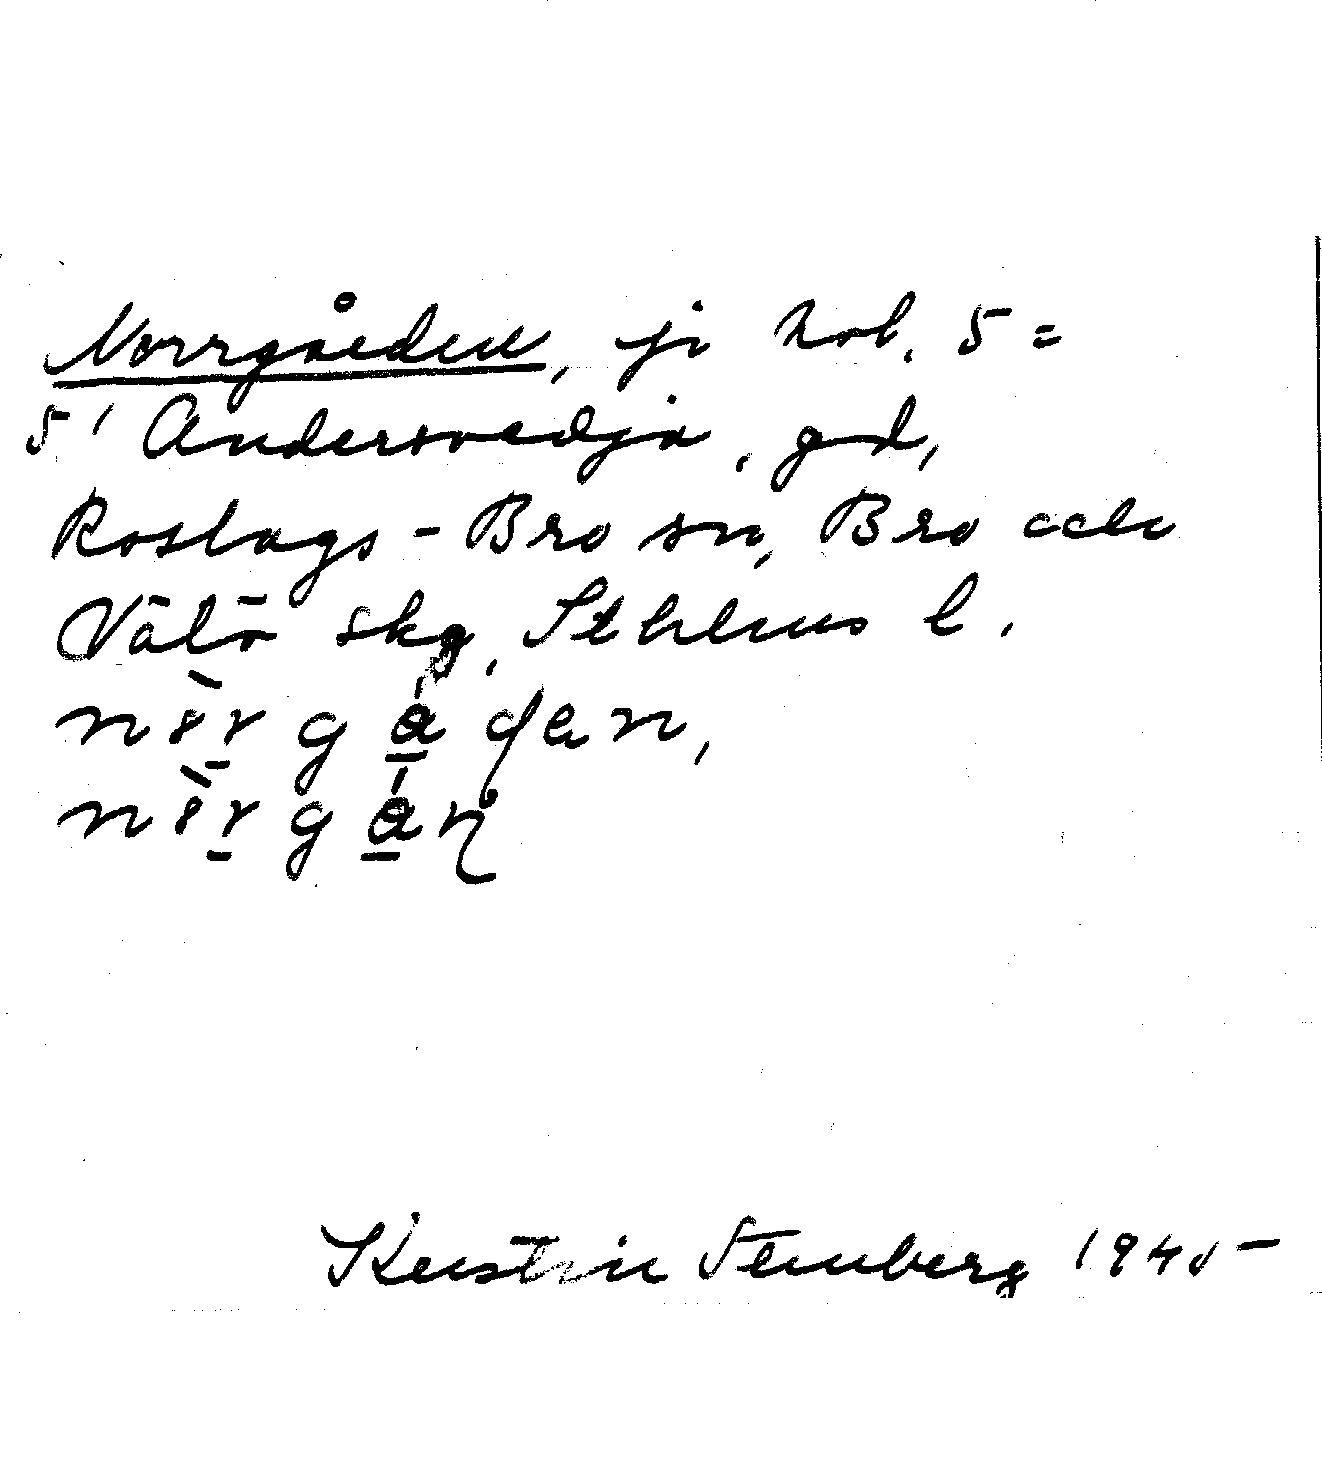 Norrgården, ji kob. 5 =
5' Andersvedja, gd,
Roslags-Bro sn, Bro och
Vätö skg, Sthlms l.
Kerstin Stenberg 1945